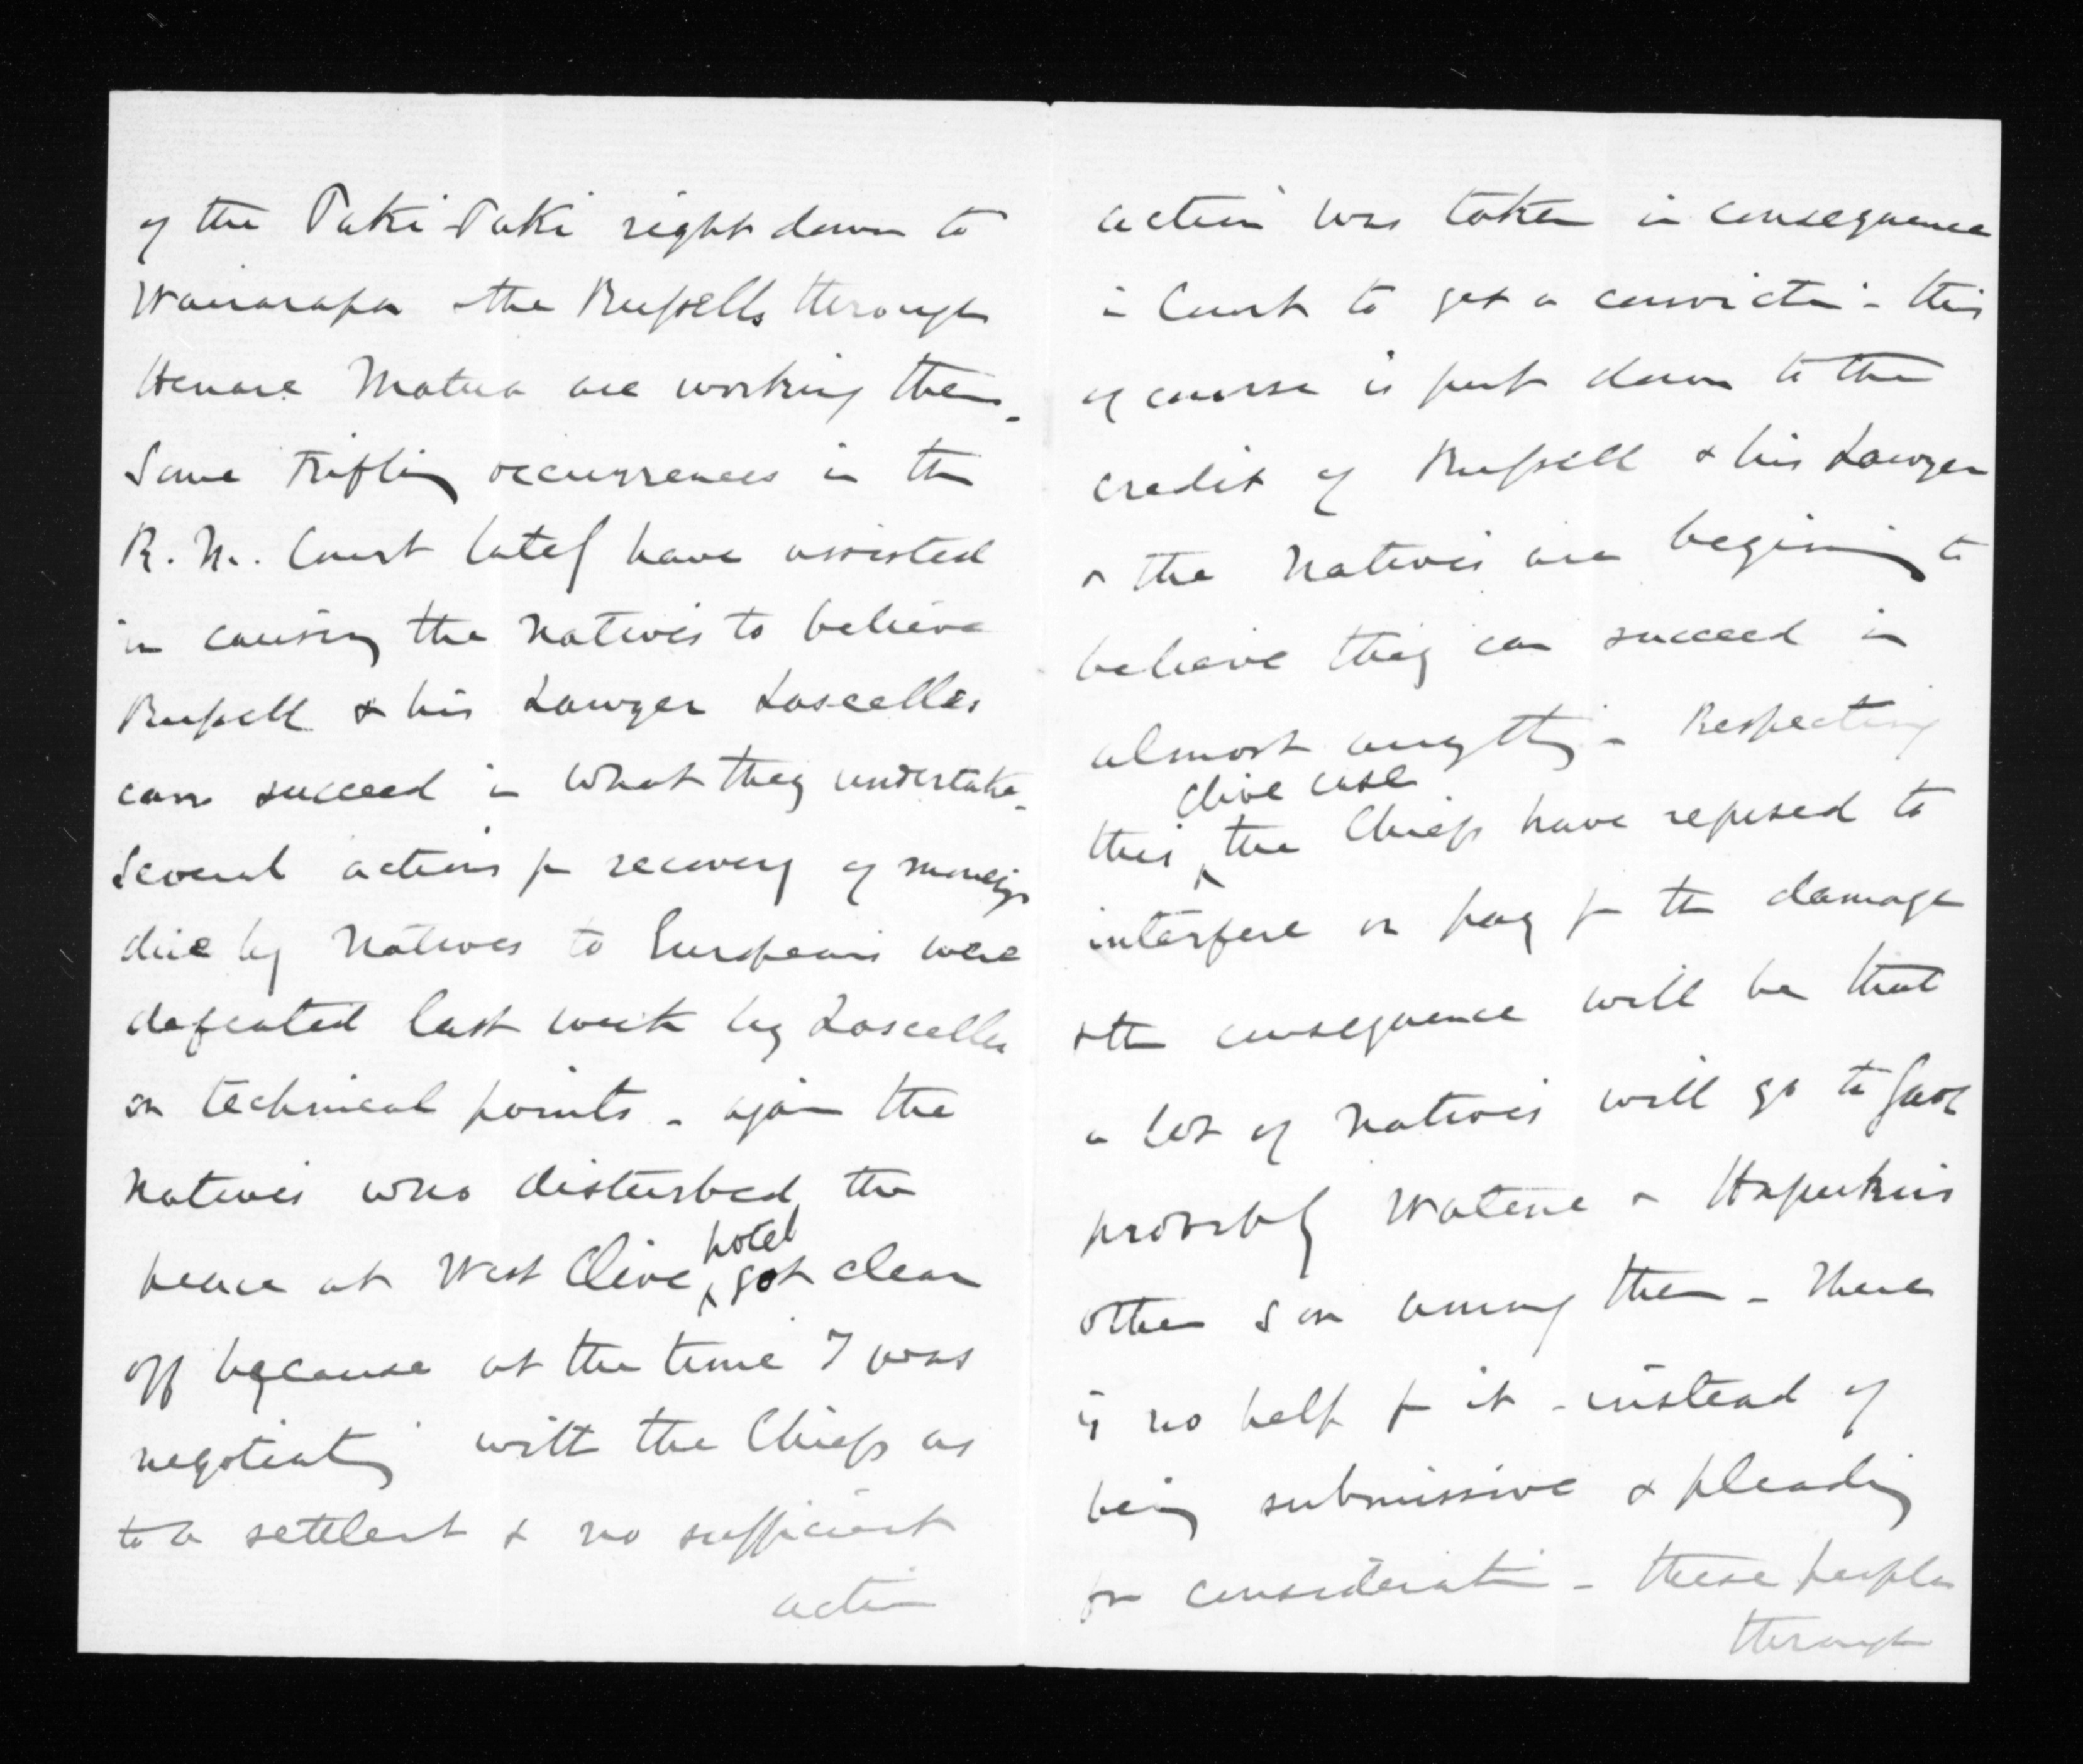 of the Taki Taki right down to
Wairarapa - the Russells through
Henare Matua are working them -
Some trifling occurrences in the
R. M. Court lately have assisted
in causing the natives to believe
Russell & his Lawyer Lascelles
can succeed in what they undertake -
Several actions for recovery of moneys
due by Natives to Europeans were
defeated last week by Lascelles
on technical points - again the
Natives who disturbed the
hotel
peace at West Clive got clear
off because at the time I was
negotiating with the Chiefs as
to a settlent & no sufficient
action
action was taken in consequence
in Court to get a conviction - this
of course is put down to the
credit of Russell & his Lawyer
& the Natives are begining to
believe they can succeed in
almost anything - Respecting
Clive case
this the Chiefs have refused to
interfere or pay for the damage
& the consequence will be that
a lot of natives will go to Gaol
probably Watene &
other son among them - There
is no help for it - instead of
being submissive & pleading
for consideration - these people
through